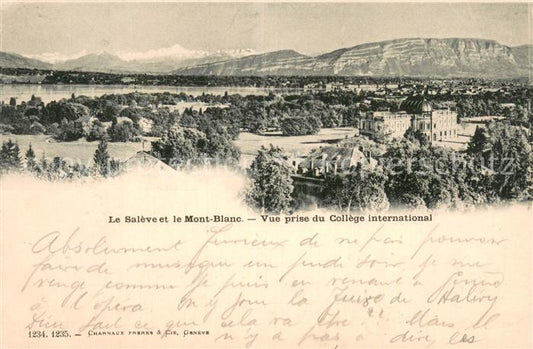 Le Salève et le Mont-Blanc. — Vue prise du Collège international
Absolument furieux de ne pas pouvoir
faire de musique un jeudi soir, je me
venge comme je puis en venant à Genève
à l'opéra. M'y joue la Juive de Halévy
Dieu sait ce que cela va être !! Mais il
n'y a pas à dire, ces
1234. 1235. — CHARNAUX FRÈRES & Cie, GENÈVE